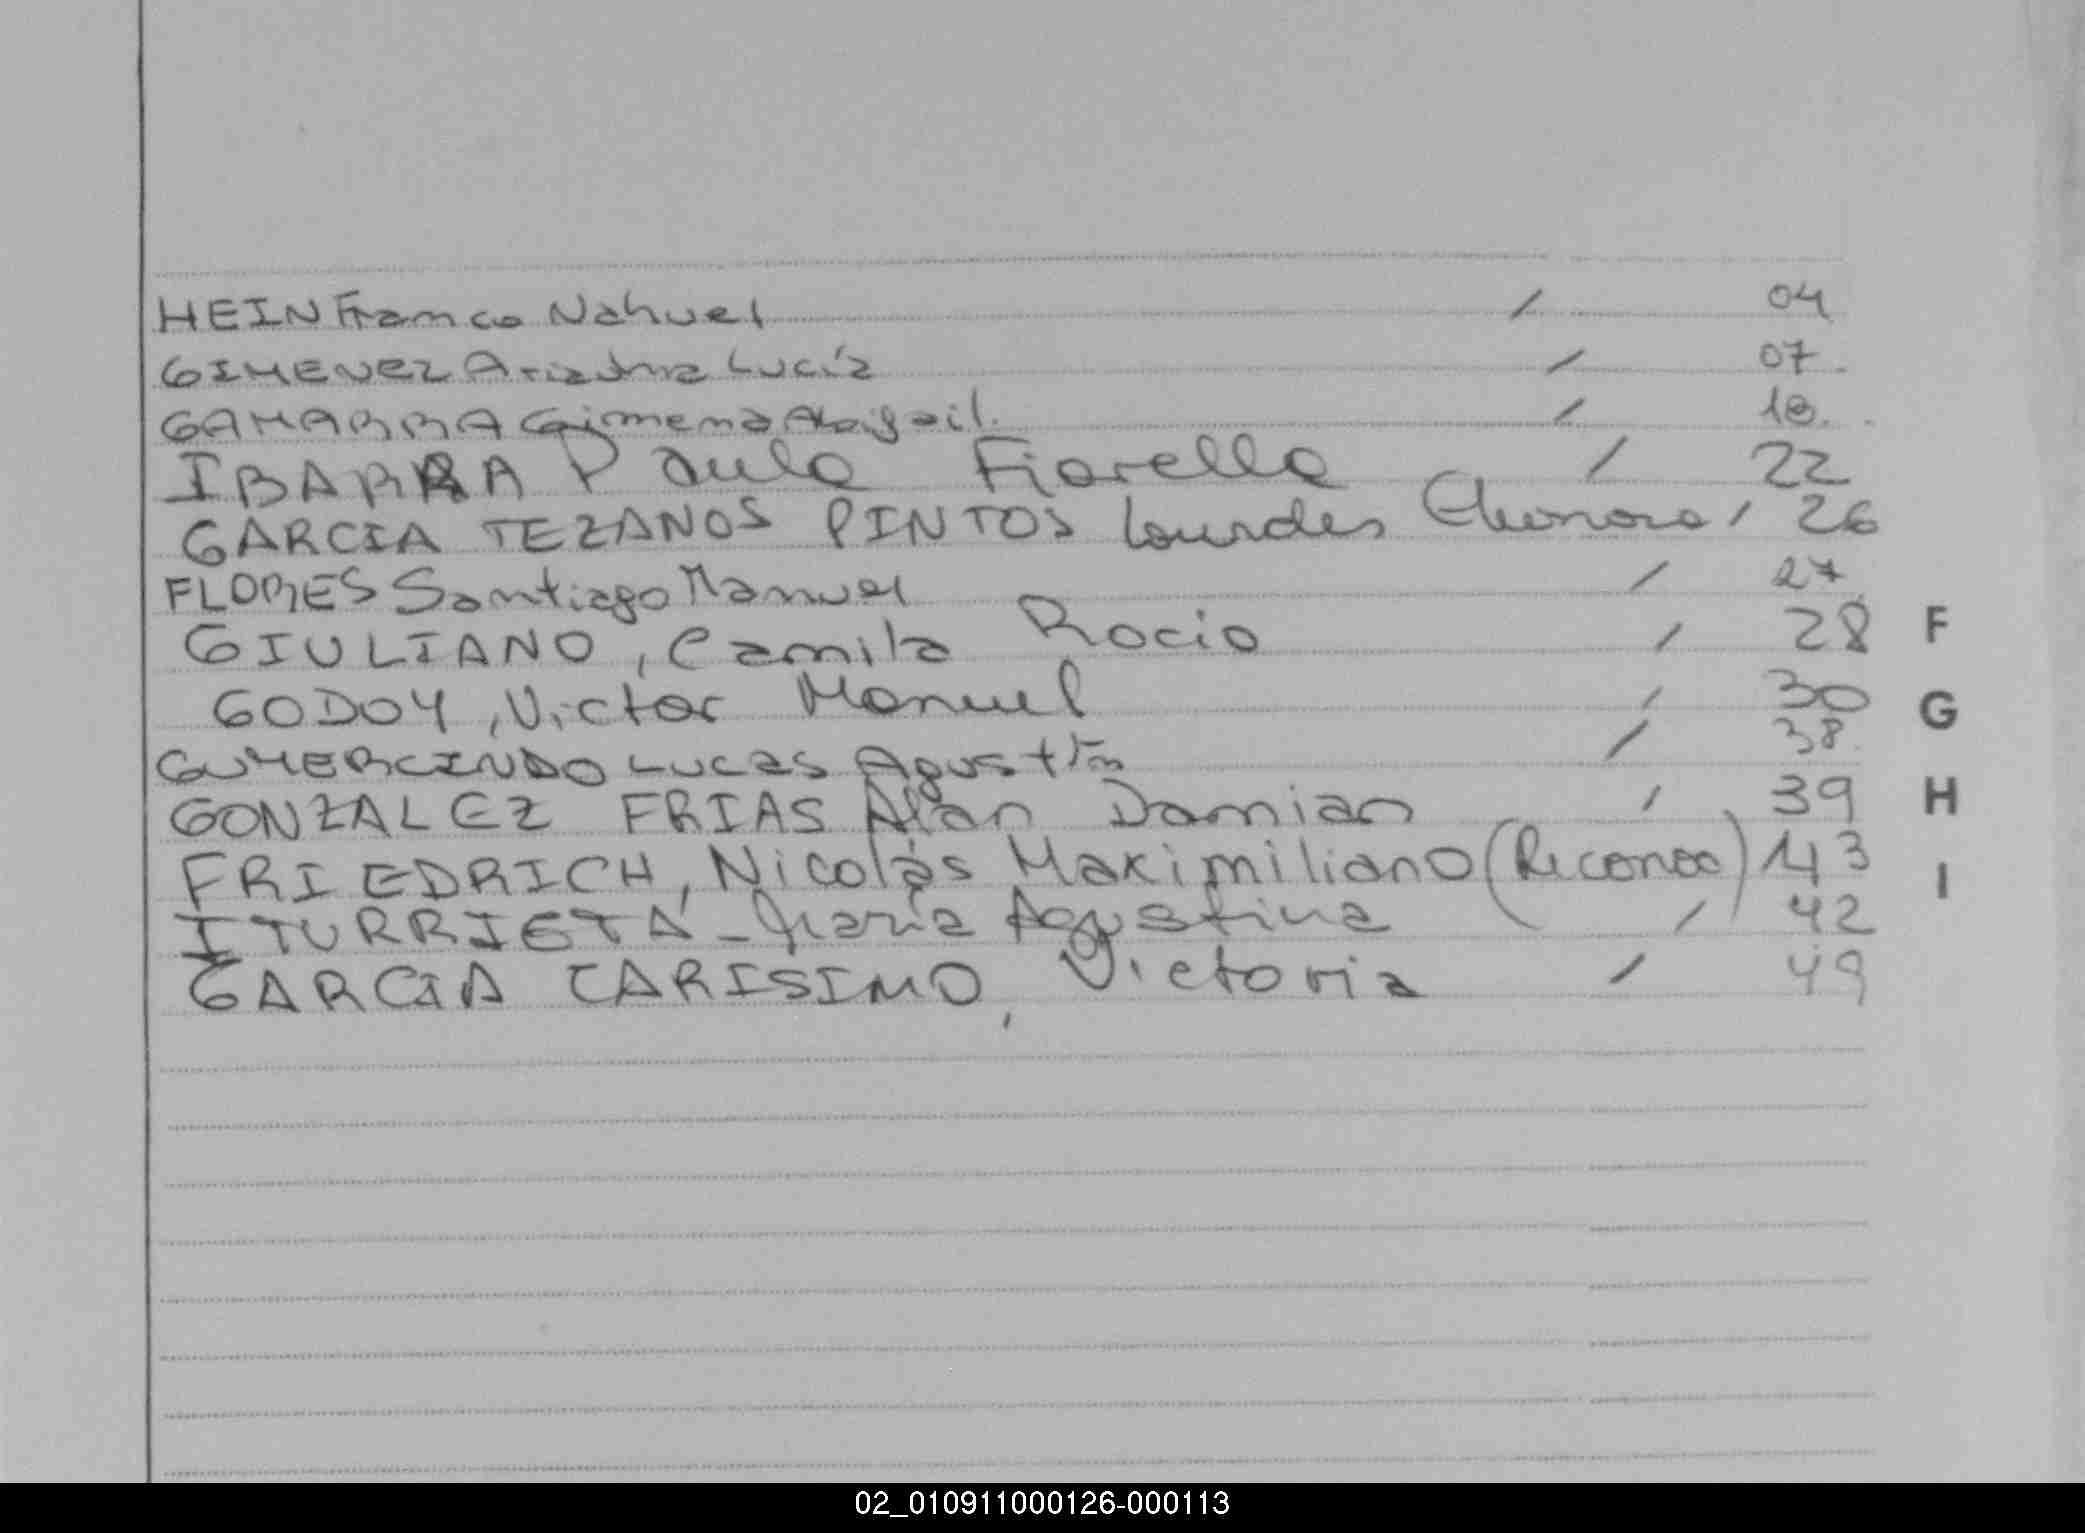 HEIN Franco Nahuel / 04
GIMENEZ Ariadna Lucía / 07
GAMARRA Gimena Abigail. / 10
IBARRA Paula Fiorella / 22
GARCIA TEZANOS PINTOS Lourdes Eleonora / 26
FLORES Santiago Manuel / 27
GIULIANO, Camila Rocio / 28 F
GODOY, Victor Manuel / 30 G
GUMERCINDO Lucas Agustín / 38
GONZALEZ FRIAS Alan Damian / 39 H
FRIEDRICH, Nicolás Maximiliano (Reconoc) / 43 I
ITURRIETA - María Agustina / 42
GARCIA CARISIMO, Victoria / 49
02_010911000126-000113